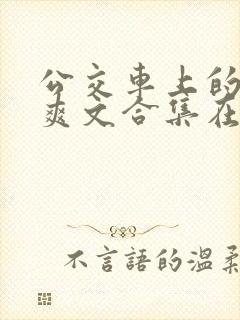 公交車上的
爽文合集在
不言語的溫柔